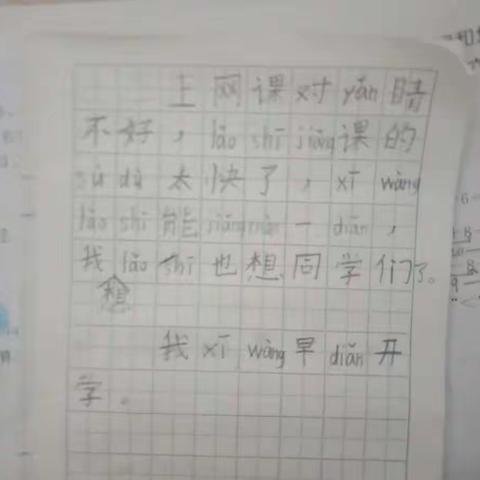 上网课对yǎn睛
不好，lǎo shī jiǎng课的
sù dù太快了，xī wàng
lǎo shī能jiǎng màn一diǎn，
我想lǎo shī也想同学们了。
我xī wàng早diǎn开
学。